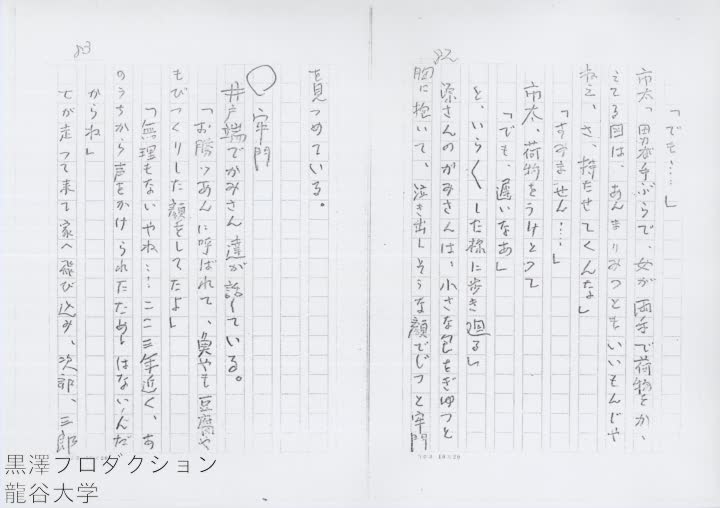 82
「でも・・・・」
市太っ、男が手ぶらで、女が両手で荷物をか、
えてる図は、あんまりみっともいいもんじゃ
ねえ、さ、持たせてくんな」
「すみません・・・・」
市太、荷物をうけとって
「でも、遅いなあ」
と、いら〱した様に歩き廻る。
源さんのかみさんは、小さな包をぎゅっと
胸に抱いて、泣き出しそうな顔でじっと牢門
83
を見つめている。
○牢門
井戸端でかみさん達が話している。
「お勝つあんに呼ばれて、魚やも豆腐や
もびっくりした顔をしてたよ」
「無理もないやね・・・・二三年近く、あ
のうちから声をかけられたためしはないんだ
からね」
が走って来て家へ飛び込み、次郎、三郎
コクヨ
20×20
黒澤プロダクション
龍谷大学